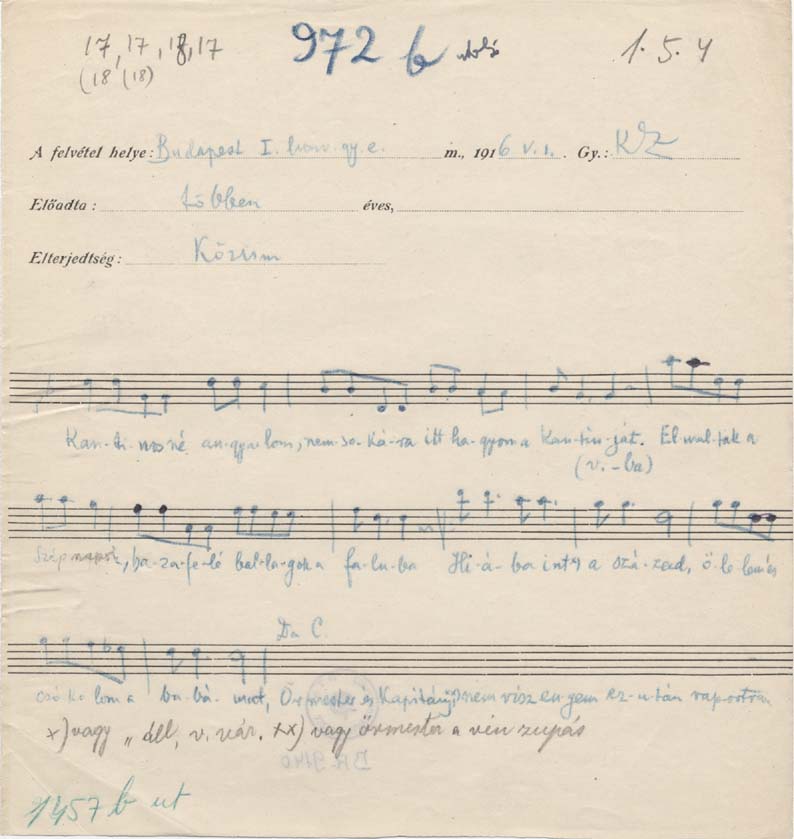 17, 17, 18, 17
(18 (18)
972 b utolsó
1. 5. 4
A felvétel helye: Budapest I. honv. gy. e. m., 1916 V. 1. Gy.: KZ
Előadta: többen éves,
Elterjedtség: Közism
Kan-ti-nos né an-gya-lom, nem-so-ká-ra itt ha-gyom a kan-tin-ját. El mul-tak a
(v. -ba)
szép napok, ha-za-fe-lé bal-la-gok a fa-lu-ba Hi-á-ba int a szá-zad, ö-le-lem és
Da C.
csó-ko-lom a ba-bá-mat, Őrmester és Kapitány nem visz en gem ez-u-tán raportra
x) vagy „ áll, v. vár. xx) vagy őrmester a vén zupás
1457 b ut